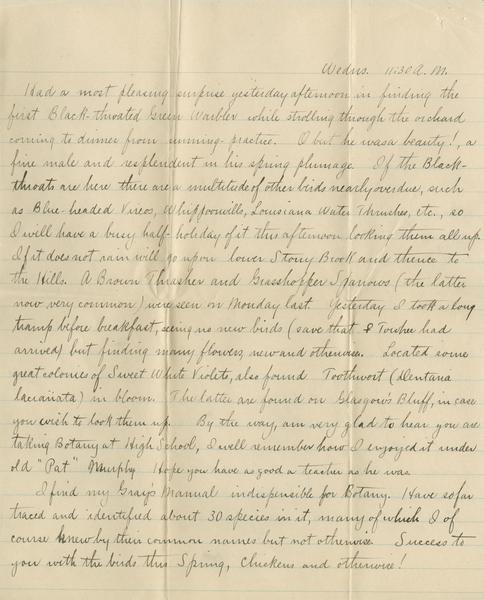 Wednes. 11:30 A.M.
Had a most pleasing surprise yesterday afternoon in finding the
first Black-throated Green Warbler while strolling through the orchard
coming to dinner from running-practice. O but he was a beauty!, a
fine male and resplendent in his spring plumage. If the Black-
throats are here there are a multitude of other birds nearly overdue, such
as Blue-headed Vireos, Whippoorwills, Louisiana Water Thrushes, etc., so
I will have a busy half-holiday of it this afternoon looking them all up.
If it does not rain will go upon lower Stony Brook and thence to
the Hills. A Brown Thrasher and Grasshopper Sparrows (the latter
now very common) were seen on Monday last. Yesterday I took a long
tramp before breakfast, seeing no new birds (save that Towhee had
arrived) but finding many flowers, new and otherwise. Located some
great colonies of Sweet White Violets, also found Toothwort (Dentaria
laciniata) in bloom. The latter are found on Glasgow's Bluff, in case
you wish to look them up. By the way, am very glad to hear you are
taking Botany at High School, I well remember how I enjoyed it under
old "Pat" Murphy. Hope you have as good a teacher as he was.
I find my Gray's Manual indispensible for Botany. Have so far
traced and identified about 30 species in it, many of which I of
course knew by their common names but not otherwise. Success to
you with the birds this Spring, Chickens and otherwise!